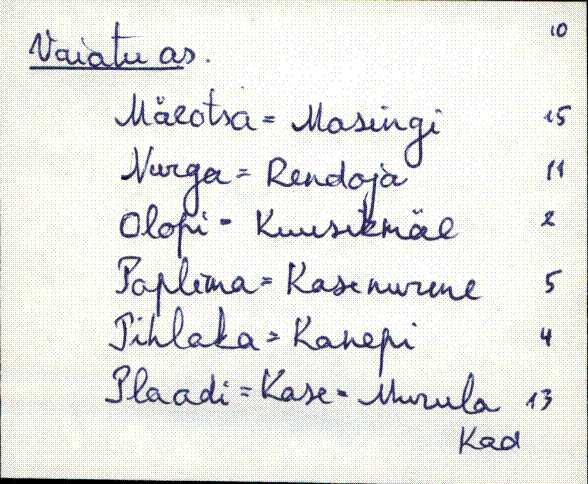 10
Vaiatu as.
Mäeotsa = Masingi 15
Nurga = Rendoja 11
Olopi - Kuusikmäe 2
Paplima = Kasenurme 5
Pihlaka = Kanepi 4
Plaadi = Kase - Murula 13
Kad